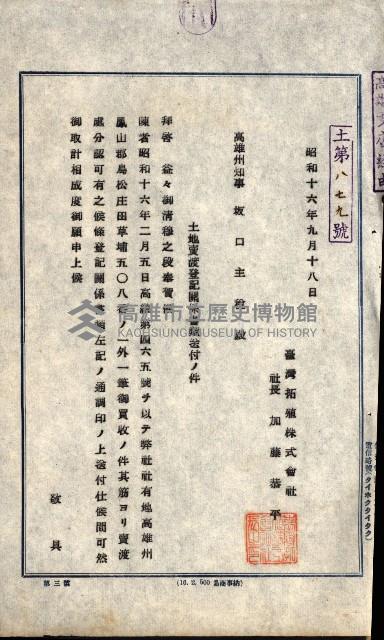 土第八七九號
昭和十六年九月十八日
臺灣拓殖株式會社
社長 加藤恭平
高雄州知事 坂口主税殿
土地賣渡登記關係書類送付ノ件
拜啓 益々御清穆之段奉賀候
陳者昭和十六年二月五日高 第四六五號ヲ以テ弊社社有地高雄州
鳳山郡鳥松庄田草埔五〇八番ノ一外一筆御買收ノ件其筋ヨリ賣渡
處分認可有之候條登記關係書類左記ノ通調印ノ上送付仕候間可然
御取計相成度御願申上候
敬具
高雄市立歷史博物館
KAOHSIUNG MUSEUM OF HISTORY
電信略號(タイホクタイタク)
第三號
(16. 2. 500 島商事納)